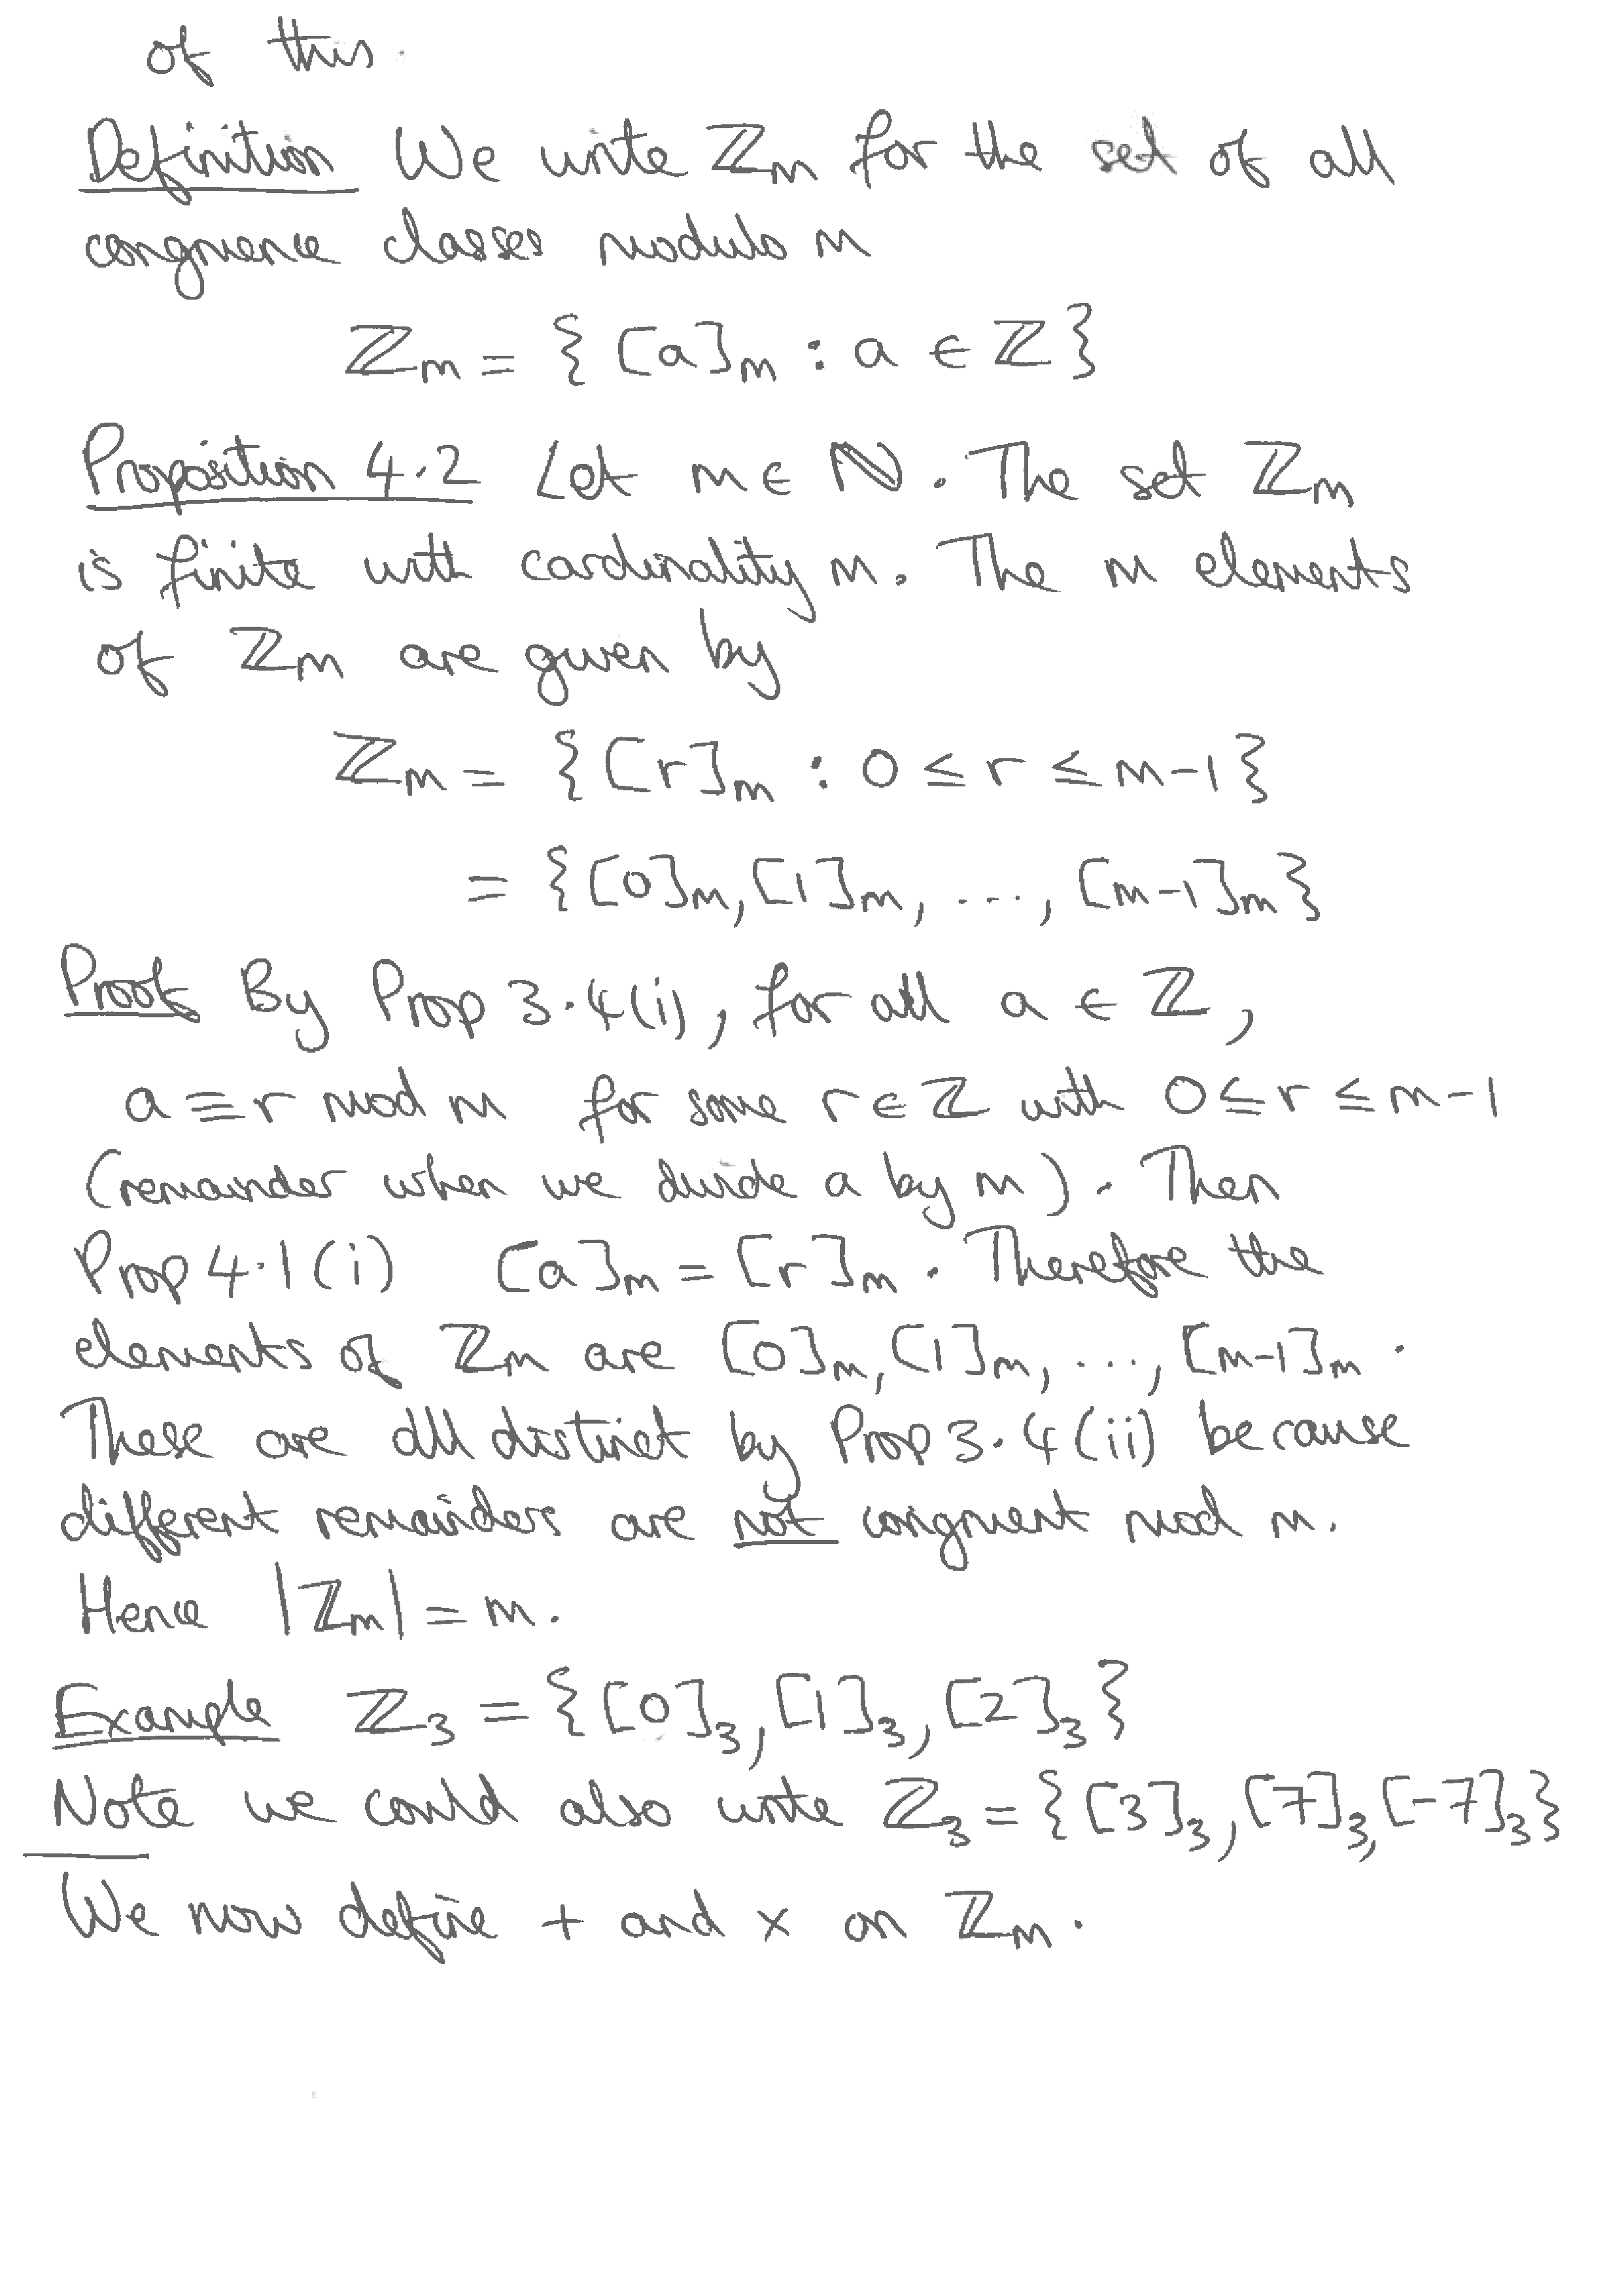 of this.
Definition We write ℤₘ for the set of all
congruence classes modulo m
ℤₘ = {[a]ₘ : a ∈ ℤ}
Proposition 4.2 Let m ∈ ℕ. The set ℤₘ
is finite with cardinality m. The m elements
of ℤₘ are given by
ℤₘ = {[r]ₘ : 0 ≤ r ≤ m-1}
= {[0]ₘ, [1]ₘ, ..., [m-1]ₘ}
Proof By Prop 3.4(i), for all a ∈ ℤ,
a ≡ r mod m for some r ∈ ℤ with 0 ≤ r ≤ m-1
(remainder when we divide a by m). Then
Prop 4.1(i) [a]ₘ = [r]ₘ. Therefore the
elements of ℤₘ are [0]ₘ, [1]ₘ, ..., [m-1]ₘ.
These are all distinct by Prop 3.4(ii) because
different remainders are not congruent mod m.
Hence |ℤₘ| = m.
Example ℤ₃ = {[0]₃, [1]₃, [2]₃}
Note we could also write ℤ₃ = {[3]₃, [7]₃, [-7]₃}
We now define + and × on ℤₘ.